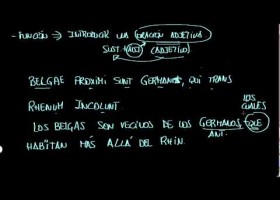 - FUNCIÓN → INTRODUCIR UNA ORACIÓN ADJETIVA
SUST. + ADJ (ADJETIVO)
BELGAE PROXIMI SUNT GERMANIS, QUI TRANS
RHENUM INCOLUNT
LOS CUALES
LOS BELGAS SON VECINOS DE LOS GERMANOS, QUE
ANT.
HABITAN MÁS ALLÁ DEL RHIN.